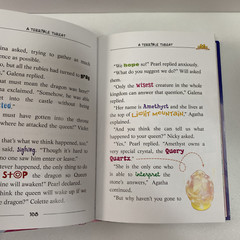 A TERRIBLE THREAT
lina asked, trying to gather as much
ence as possible.
, but all the rubies had turned to gray
," Galena replied.
at must mean the dragon was here!"
na exclaimed. "Somehow, he was able
et into the castle without being
must have gotten into the throne
where he attacked the queen!" Nicky
that's what we think happened, too,"
said, sighing. "Though it's hard to
no one saw him enter or leave."
ever, the only thing to do
STOP the dragon so Queen
ine will awaken!" Pearl declared.
think the queen will wake up if we
dragon?" Colette asked.
108
A TERRIBLE THREAT
"We hope so!" Pearl replied anxiously.
"What do you suggest we do?" Will asked
them.
"Only the wisest creature in the whole
kingdom can answer that question," Galena
replied.
"Her name is Amethyst and she lives at
the top of Light Mountain," Agatha
explained.
"And you think she can tell us what
happened to your queen?" Nicky asked.
"Yes," Pearl replied. "Amethyst owns a
very special crystal, the Query
Quartz."
"She is the only one who is
able to interpret the
stone's answers," Agatha
continued.
"But why haven't you gone to